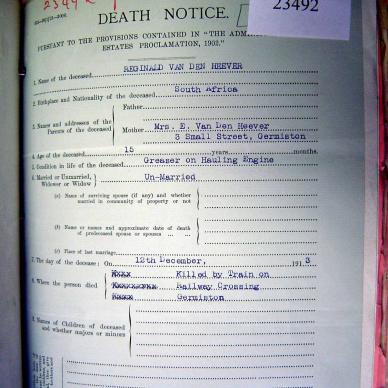 23492
23492
DEATH NOTICE.
PURSUANT TO THE PROVISIONS CONTAINED IN "THE
ESTATES PROCLAMATION, 1902."
1. Name of the deceased REGINALD VAN DEN HEEVER
2. Birthplace and Nationality of the deceased South Africa
3. Names and addresses of the Parents of the deceased
Father
Mother Mrs. E. Van Den Heever
3 Small Street, Germiston
4. Age of the deceased 15 years months.
5. Condition in life of the deceased Greaser on Hauling Engine
6. Married or Unmarried, Widower or Widow Un-Married
(a) Name of surviving spouse (if any) and whether married in community of property or not
(b) Name or names and approximate date of death of predeceased spouse or spouses
(c) Place of last marriage
7. The day of the decease: On 12th December, 1913
8. Where the person died
Killed by Train on
Railway Crossing
Germiston
9. Names of Children of deceased and whether majors or minors